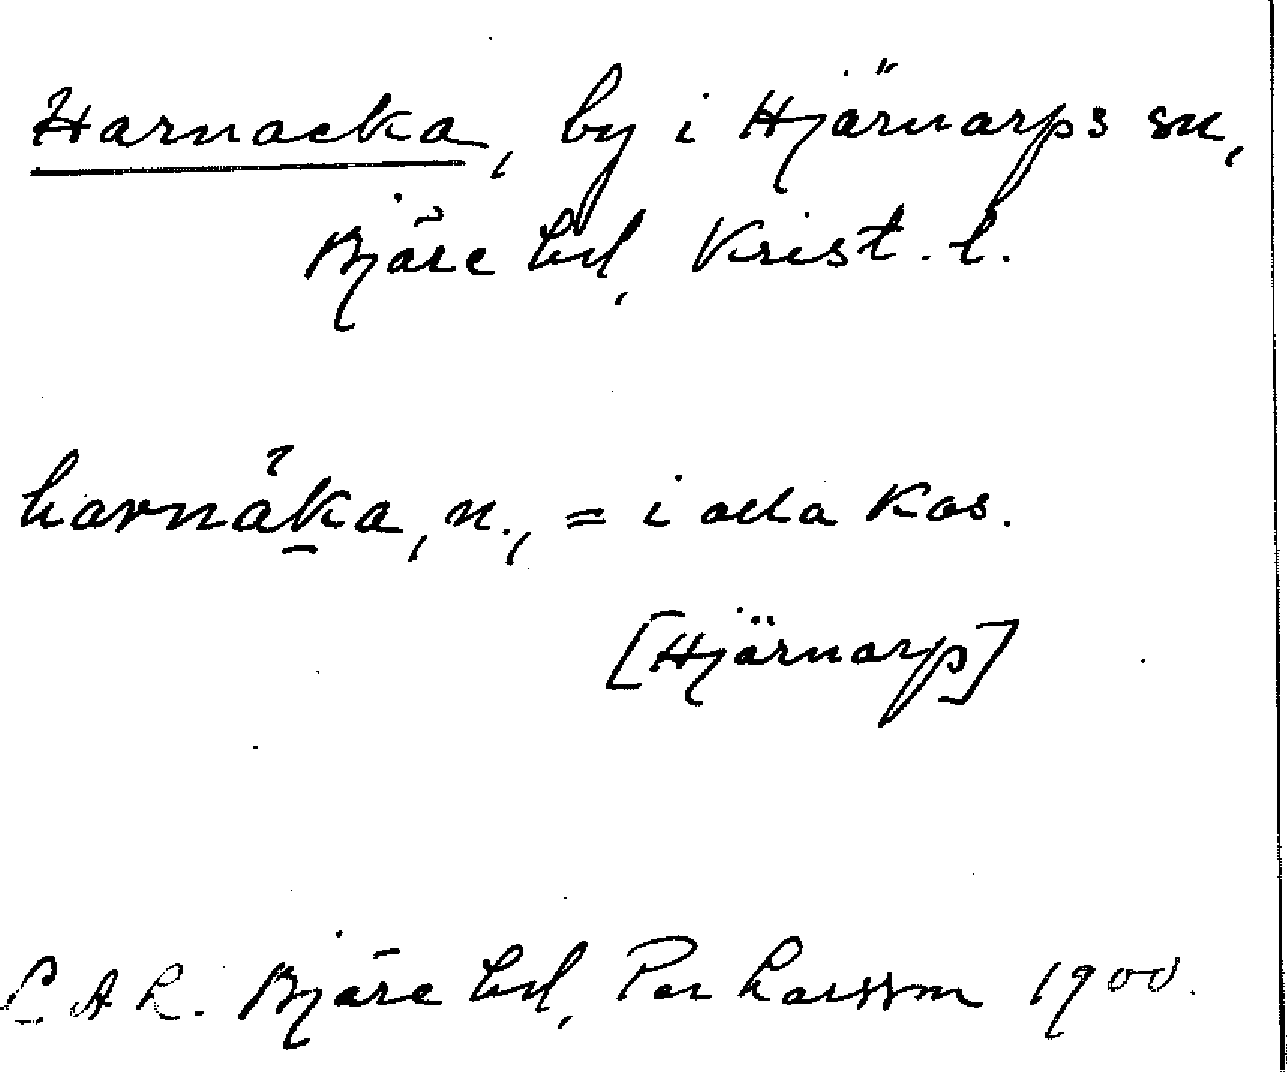 Harnacka, by i Hjärnarps sn,
Bjäre hd, Krist. l.
harnáka, n., = i alla kas.
[Hjärnarp]
L A L. Bjäre hd, Per Larsson 1900.